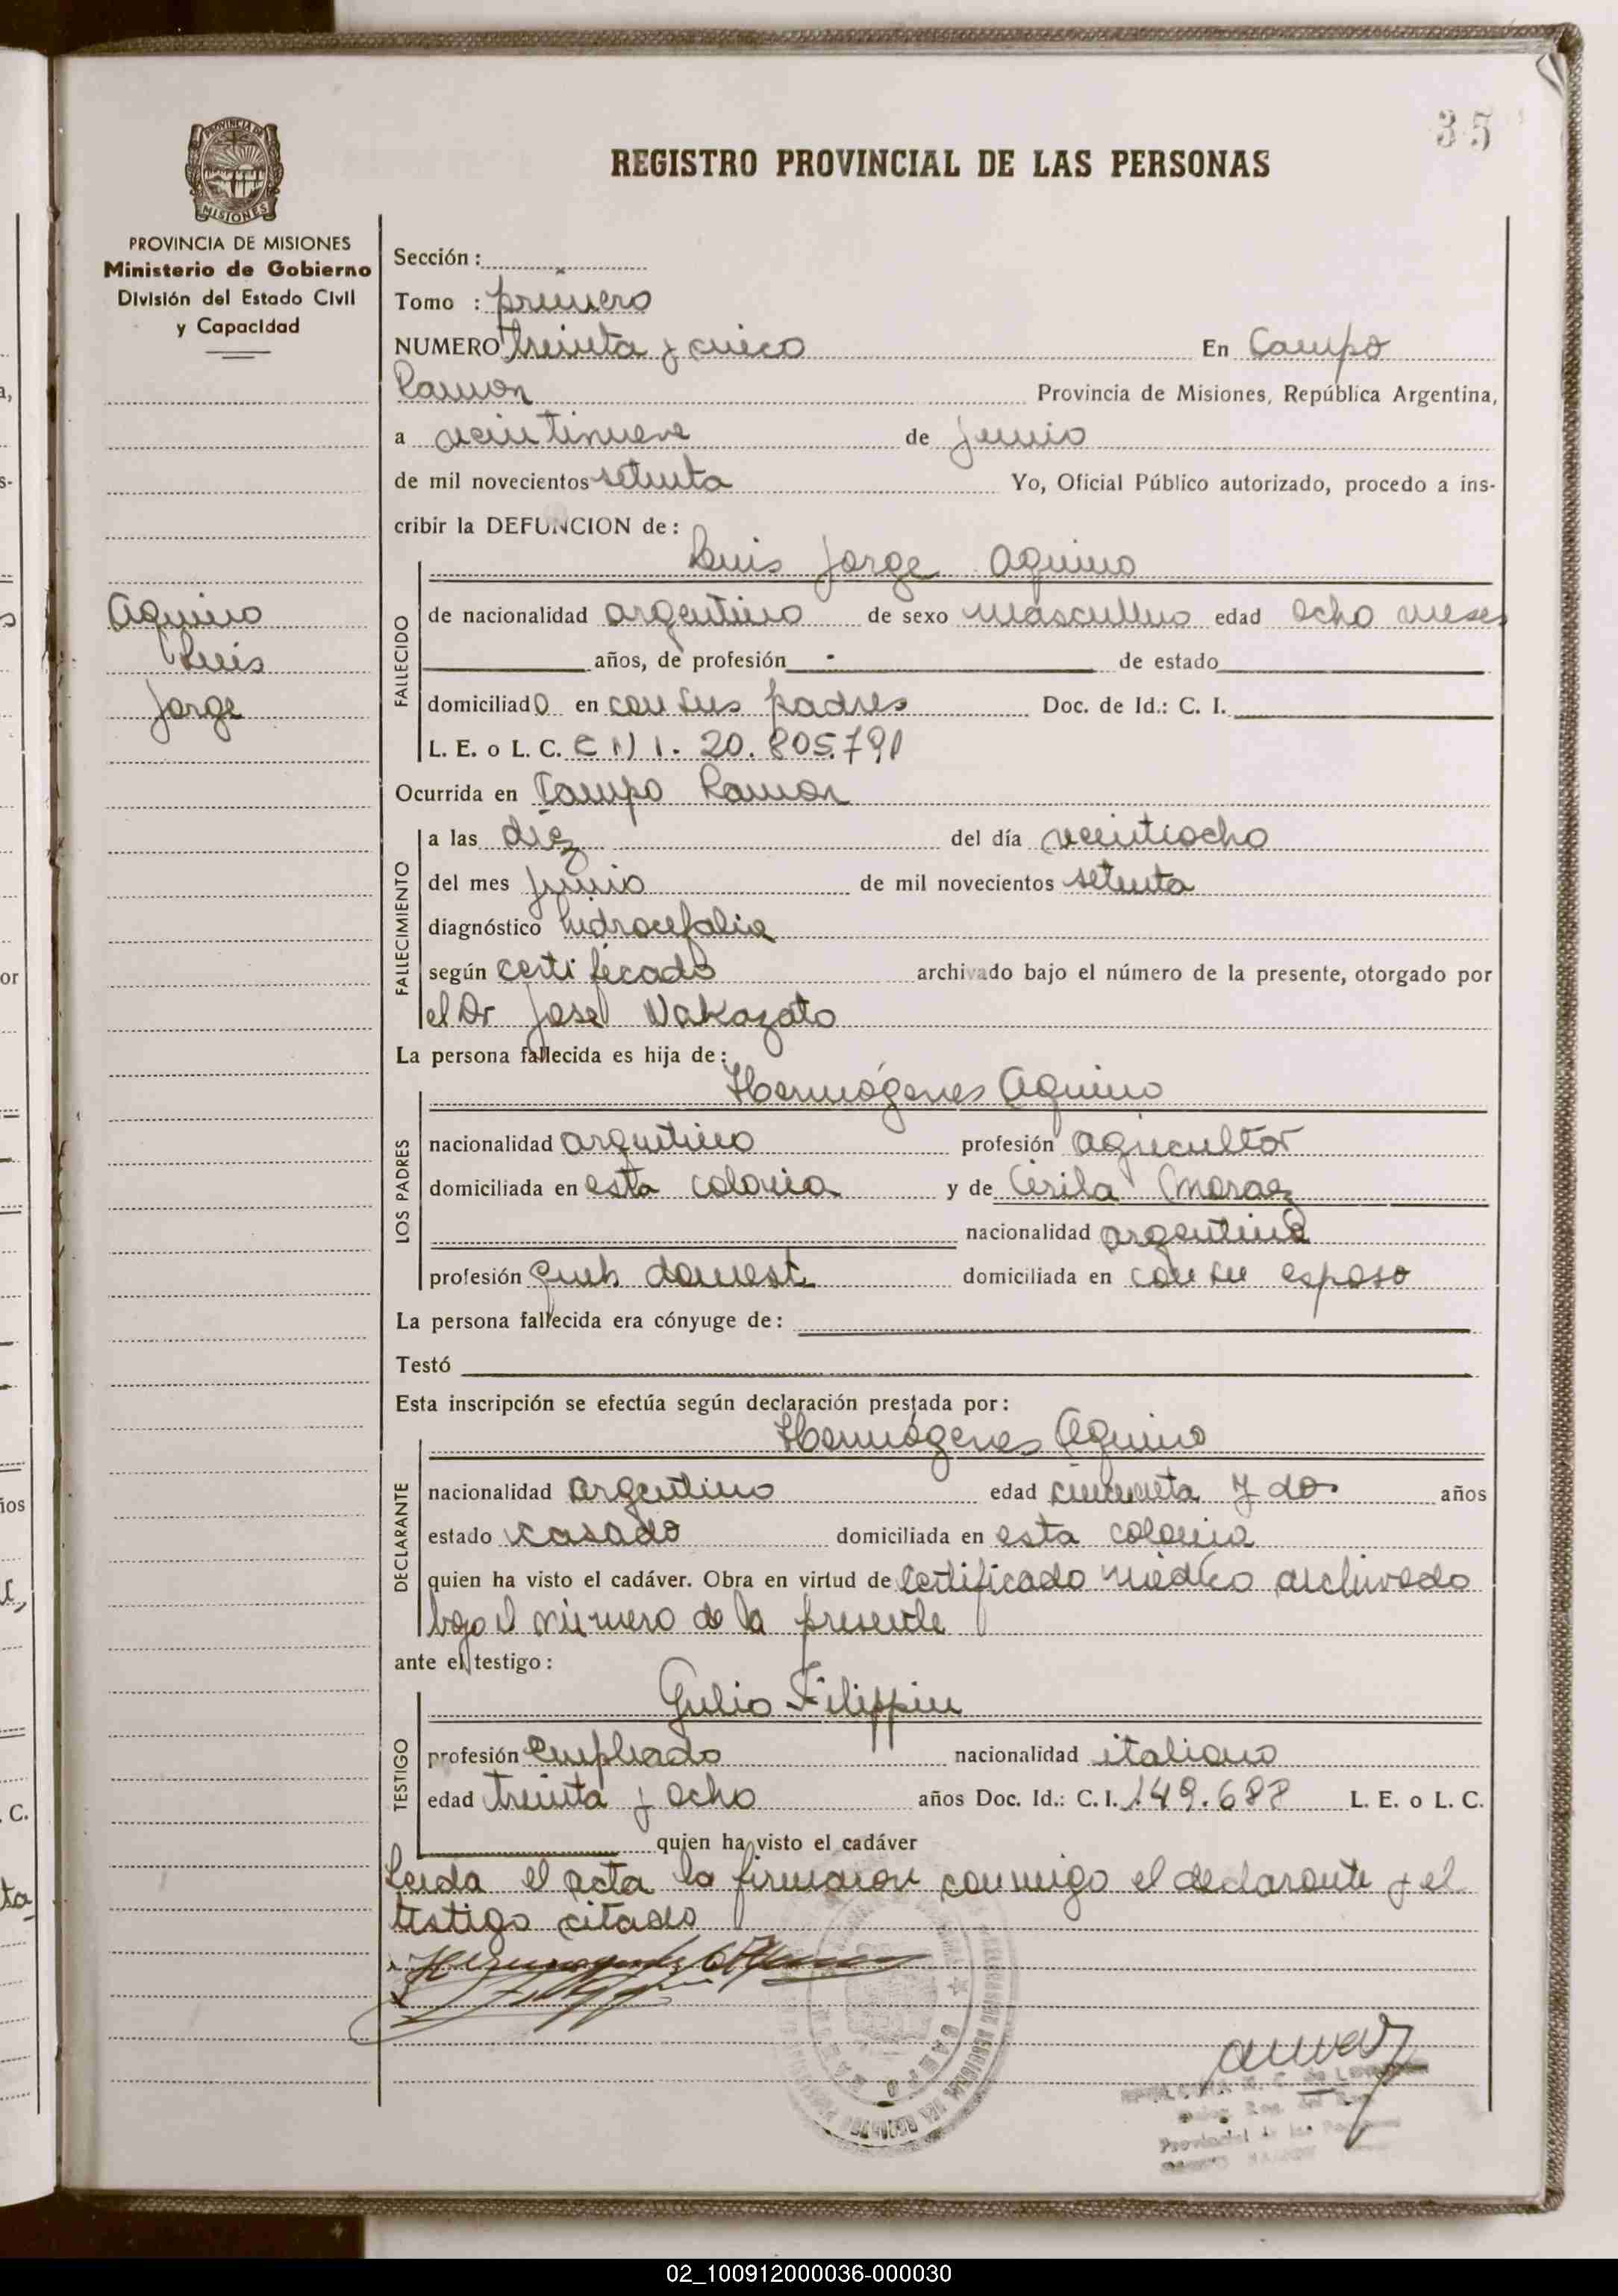 35
REGISTRO PROVINCIAL DE LAS PERSONAS
PROVINCIA DE MISIONES
Ministerio de Gobierno
División del Estado Civil
y Capacidad
Aquino
Luis
Jorge
Sección :
Tomo : primero
NUMERO treinta y cinco En Campo
Ramon Provincia de Misiones, República Argentina,
a veintinueve de junio
de mil novecientos setenta Yo, Oficial Público autorizado, procedo a ins-
cribir la DEFUNCION de :
Luis Jorge Aquino
FALLECIDO
de nacionalidad argentino de sexo masculino edad ocho meses
años, de profesión - de estado
domiciliado en con sus padres Doc. de Id.: C. I.
L. E. o L. C. C N I. 20.805.791
Ocurrida en Campo Ramon
FALLECIMIENTO
a las diez del día veintiocho
del mes junio de mil novecientos setenta
diagnóstico hidrocefalia
según certificado archivado bajo el número de la presente, otorgado por
el Dr Jose Nakazato
La persona fallecida es hija de :
Hermógenes Aquino
LOS PADRES
nacionalidad argentino profesión agricultor
domiciliada en esta colonia y de Cirila Moraez
nacionalidad argentina
profesión queh domest. domiciliada en con su esposo
La persona fallecida era cónyuge de :
Testó
Esta inscripción se efectúa según declaración prestada por :
Hermógenes Aquino
DECLARANTE
nacionalidad argentino edad cincuenta y dos años
estado casado domiciliada en esta colonia
quien ha visto el cadáver. Obra en virtud de certificado médico archivado
bajo el número de la presente
ante el testigo :
Gulio Filippin
TESTIGO
profesión empleado nacionalidad italiano
edad treinta y ocho años Doc. Id.: C. I. 149.688 L. E. o L. C.
quien ha visto el cadáver
Leida el acta la firmaron conmigo el declarante y el
testigo citado
Provincial de las
02_100912000036-000030